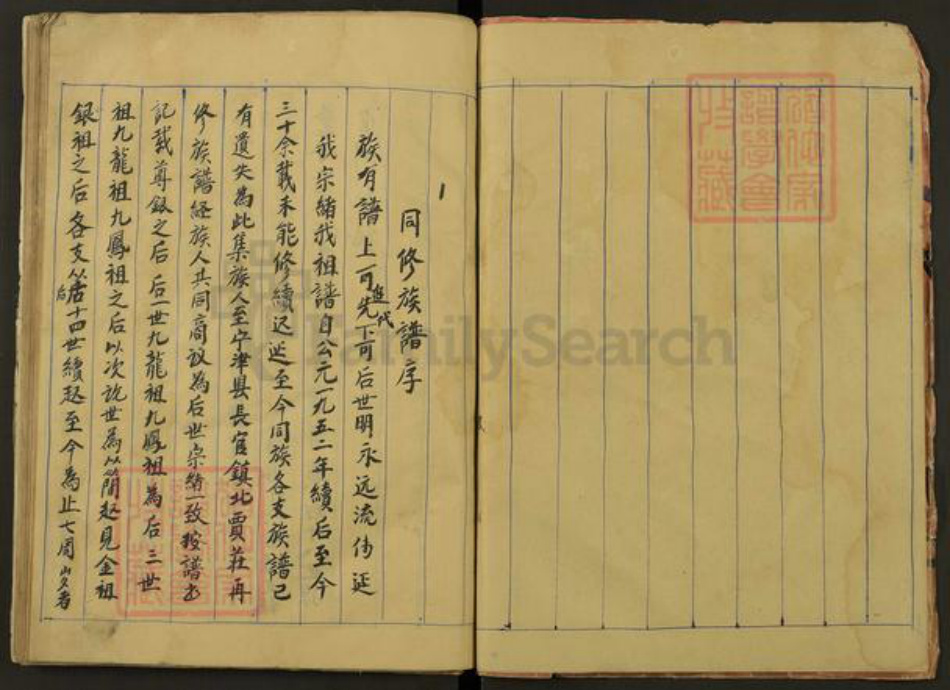 1
同修族譜序
族有譜上可追先代下可后世明永远流传延
我宗緒我祖譜自公元一九五二年續后至今
三十余载未能修續迟延至今同族各支族譜已
有遺失為此集族人至宁津县長官鎮北賈莊再
修族譜経族人共同商议為后世宗緒一致按譜书
記载尊銀之后后一世九龍祖九鳳祖為后三世
祖九龍祖九鳳祖之后以次说世為从蘭起見金祖
銀祖之后各支从居后十四世續起至今為止七周
FamilySearch